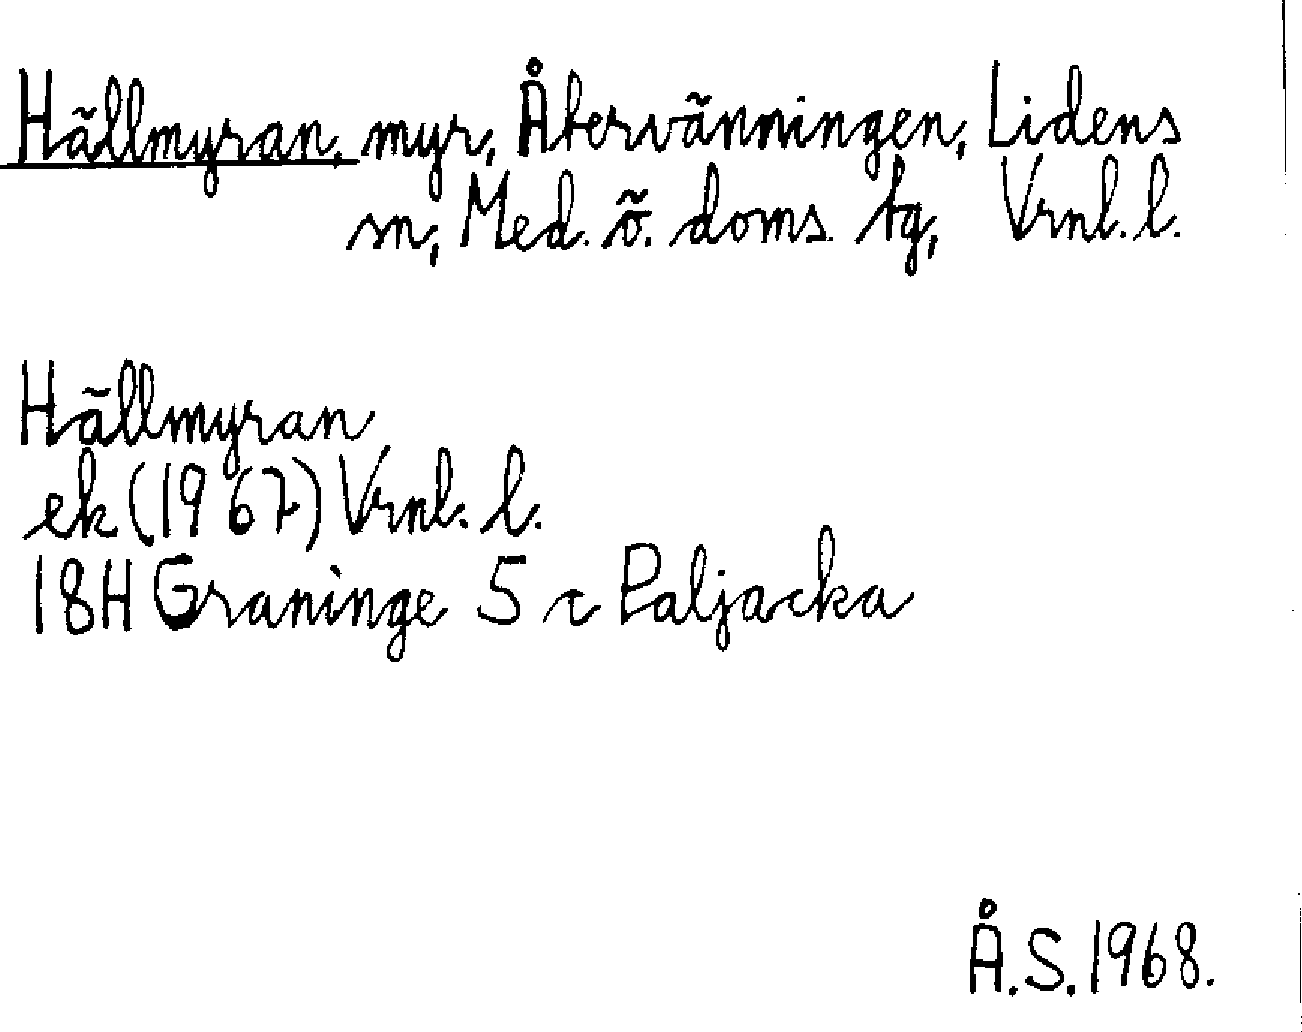 Hällmyran, myr, Återvänningen, Lidens
sn, Med. ö. doms. tg, Vrnl. l.
Hällmyran
ek (1967) Vrnl. l.
18H Graninge 5 c Paljacka
Å.S. 1968.